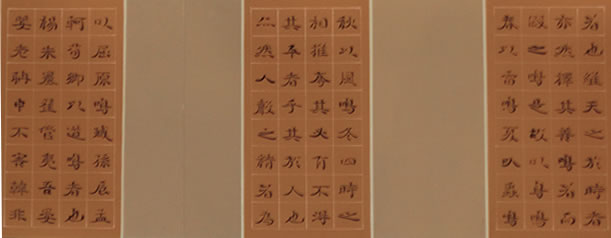 者也維天之於時者
亦然擇其善鳴者而
假之鳴是故以鳥鳴
春以雷鳴夏以蟲鳴
秋以風鳴冬四時之
相推奪其必有不得
其平者乎其於人也
亦然人聲之精者為
以屈原鳴臧孫辰孟
軻荀卿以道鳴者也
楊朱墨翟管夷吾晏
嬰老聃申不害韓非